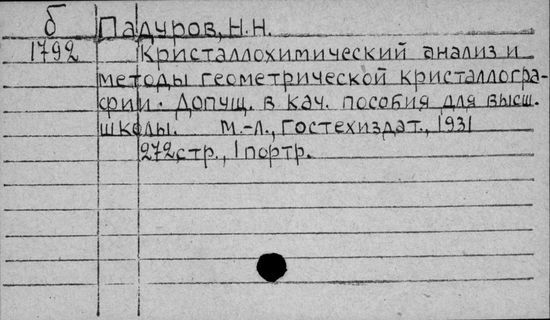 б Падуров, Н.Н.
1792 Кристаллохимический анализ и
методы геометрической кристаллогра-
фии. Допущ. в кач. пособия для высш.
школы. М.-Л., Гостехиздат., 1931
272 стр., 1 портр.